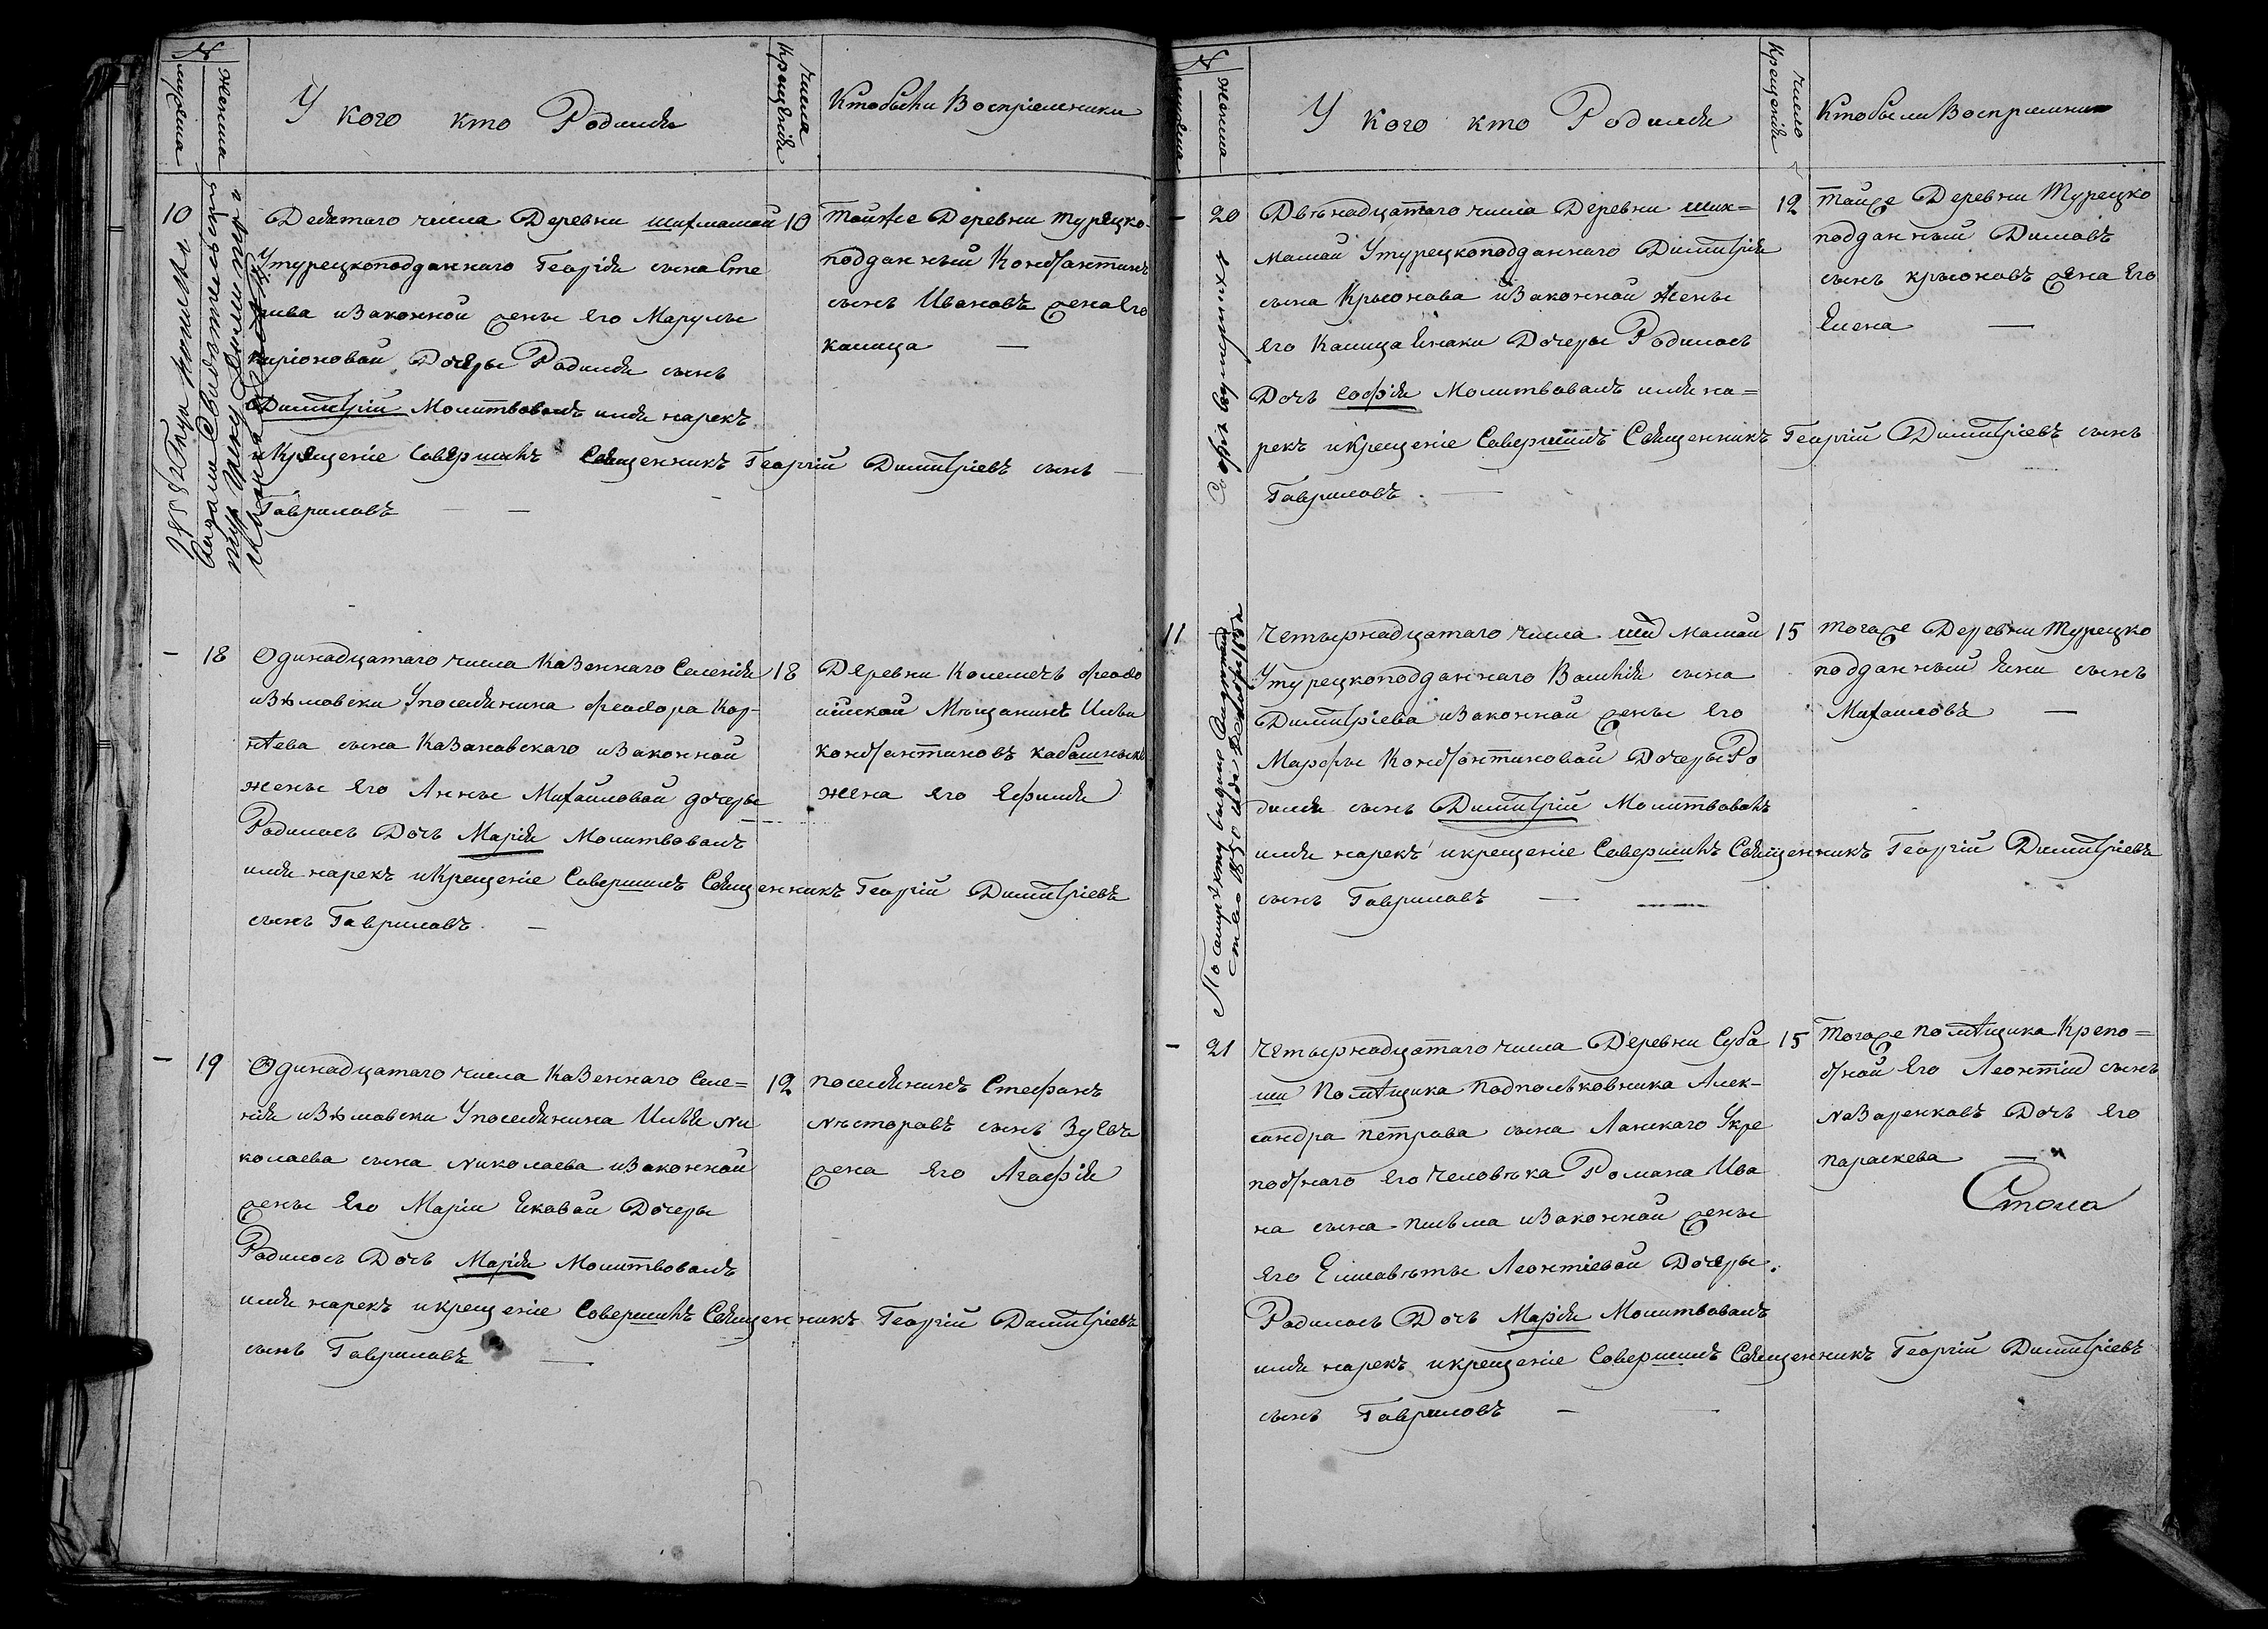 №
мужеска
женска
У кого кто Родился
числа Крещенія
Кто были Воспріемники
10
Девятаго числа Деревни шихмамай
Утурецкоподданнаго Георгія сына Сте
иваконной жены его Марулы
Дочеры Родился сынъ
Димитрій Молитвовалъ имя нарекъ
икрещеніе Совершилъ Священникъ Георгій Димитріевъ сынъ
Гавриловъ
10
Тойже Деревни турецко
подданный Константинъ
сынъ Ивановъ жена его
калица
18
Одинадцатаго числа Казеннаго Селенія
изюмовски Упоселянина феодора Кор-
нѣева сына Казановскаго изаконной
жены его Анны Михаиловой дочеры
Родилась Дочь Марія Молитвовалъ
имя нарекъ икрещеніе Совершилъ Священникъ Георгій Димитріевъ
сынъ Гавриловъ
18
Деревни Колемечь феодо
сійской Мѣщанинъ Илья
константиновъ
жена его Ефимія
19
Одинадцатаго числа Казеннаго Селе=
нія изюмовски Упоселянина Ильи ни
колаева сына николаева изаконной
жены его Маріи Дочеры
Родилась Дочь Марія Молитвовалъ
имя нарекъ икрещеніе Совершилъ Священникъ Георгій Димитріевъ
сынъ Гавриловъ
12
поселянинъ Стефанъ
несторовъ сынъ Зуевъ
жена его Агафія
№
мужеска
женска
У кого кто Родился
число Крещенія
Кто были Воспріемники
20
Двѣнадцатаго числа Деревни шик=
мамай Утурецкоподданнаго Димитрія
сына Крыонова изаконной жены
его Калица Дочеры Родилась
Дочь софія Молитвовалъ имя на=
рекъ икрещеніе Совершилъ Священникъ Георгій Димитріевъ сынъ
Гавриловъ
12
тойже Деревни Турецко
подданный Димовъ
сынъ крыоновъ жена его
Елена
11
четырнадцатаго числа ших мамай
Утурецкоподданнаго Василія сына
Димитріева изаконной жены его
Марфы Константиновой Дочеры Ро
дился сынъ Димитрій Молитвовалъ
имя нарекъ икрещеніе Совершилъ Священникъ Георгій Димитріевъ
сынъ Гавриловъ
15
тогоже Деревни Турецко
подданный Яни сынъ
Михаиловъ
21
четырнадцатаго числа Деревни Суба
ши Помѣщика Подполковника Алек-
сандра петрова сына Ланскаго Укре
постнаго его человѣка Романа Ива
на сына письма изаконной жены
его Елисаветы Леонтіевой Дочеры
Родилась Дочь Марія Молитвовалъ
имя нарекъ икрещеніе Совершилъ Священникъ Георгій Димитріевъ
сынъ Гавриловъ
15
Тогоже помѣщика Крепо=
стной его Леонтій сынъ
назаренковъ Дочь его
параскева